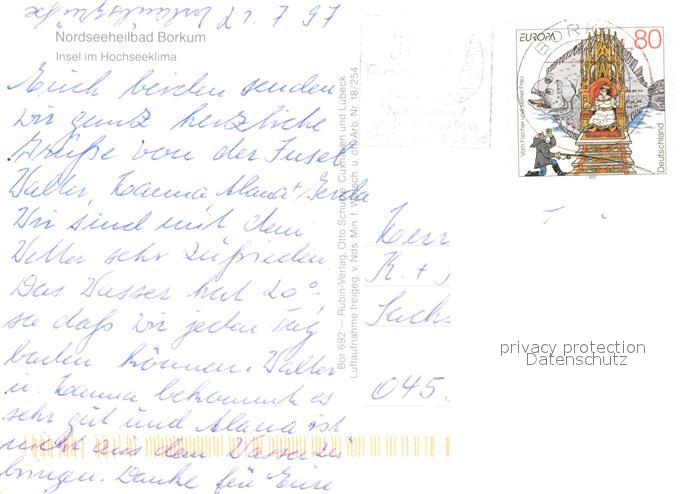 21.7.97
Nordseeheilbad Borkum
Insel im Hochseeklima
Euch beiden senden
wir ganz herzliche
Grüße von der Insel
Walter, Hanna Alana + Gerda
Wir sind mit dem
Wetter sehr zufrieden
Das Wasser hat 20°,
so daß wir jeden Tag
baden können. Walter
u. Hanna bekommt es
sehr gut und Alana ist
nicht aus dem Wasser zu
bringen. Danke für Eure
Bor 692 — Rubin-Verlag, Otto Schulze, Cuxhaven und Lübeck
Luftaufnahme freigeg. v. Nds. Min. f. Wirtsch. u. Arb. Nr. 18/254
BOR
EUROPA
80
Vom Fischer und seiner Frau
Deutschland
1997
Herr
K. +
045
privacy protection
Datenschutz